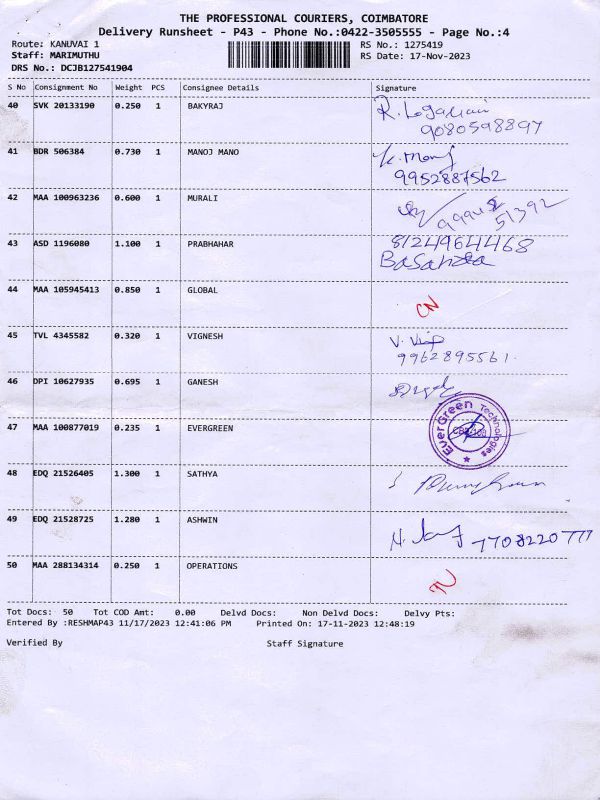 THE PROFESSIONAL COURIERS, COIMBATORE
Delivery Runsheet - P43 - Phone No.:0422-3505555 - Page No.:4
Route: KANUVAI 1 RS No.: 1275419
Staff: MARIMUTHU RS Date: 17-Nov-2023
DRS No.: DCJB127541904
S No Consignment No Weight PCS Consignee Details Signature
40 SVK 20133190 0.250 1 BAKYRAJ
9080598897
41 BDR 506384 0.730 1 MANOJ MANO
9952887562
42 MAA 100963236 0.600 1 MURALI
51392
43 ASD 1196080 1.100 1 PRABHAHAR 8124964468
44 MAA 105945413 0.850 1 GLOBAL
CN
45 TVL 4345582 0.320 1 VIGNESH
9962895561
46 DPI 10627935 0.695 1 GANESH
47 MAA 100877019 0.235 1 EVERGREEN
EverGreen Technologies
48 EDQ 21526405 1.300 1 SATHYA
49 EDQ 21528725 1.280 1 ASHWIN
50 MAA 288134314 0.250 1 OPERATIONS
Tot Docs: 50 Tot COD Amt: 0.00 Delvd Docs: Non Delvd Docs: Delvy Pts:
Entered By :RESHMAP43 11/17/2023 12:41:06 PM Printed On: 17-11-2023 12:48:19
Verified By Staff Signature